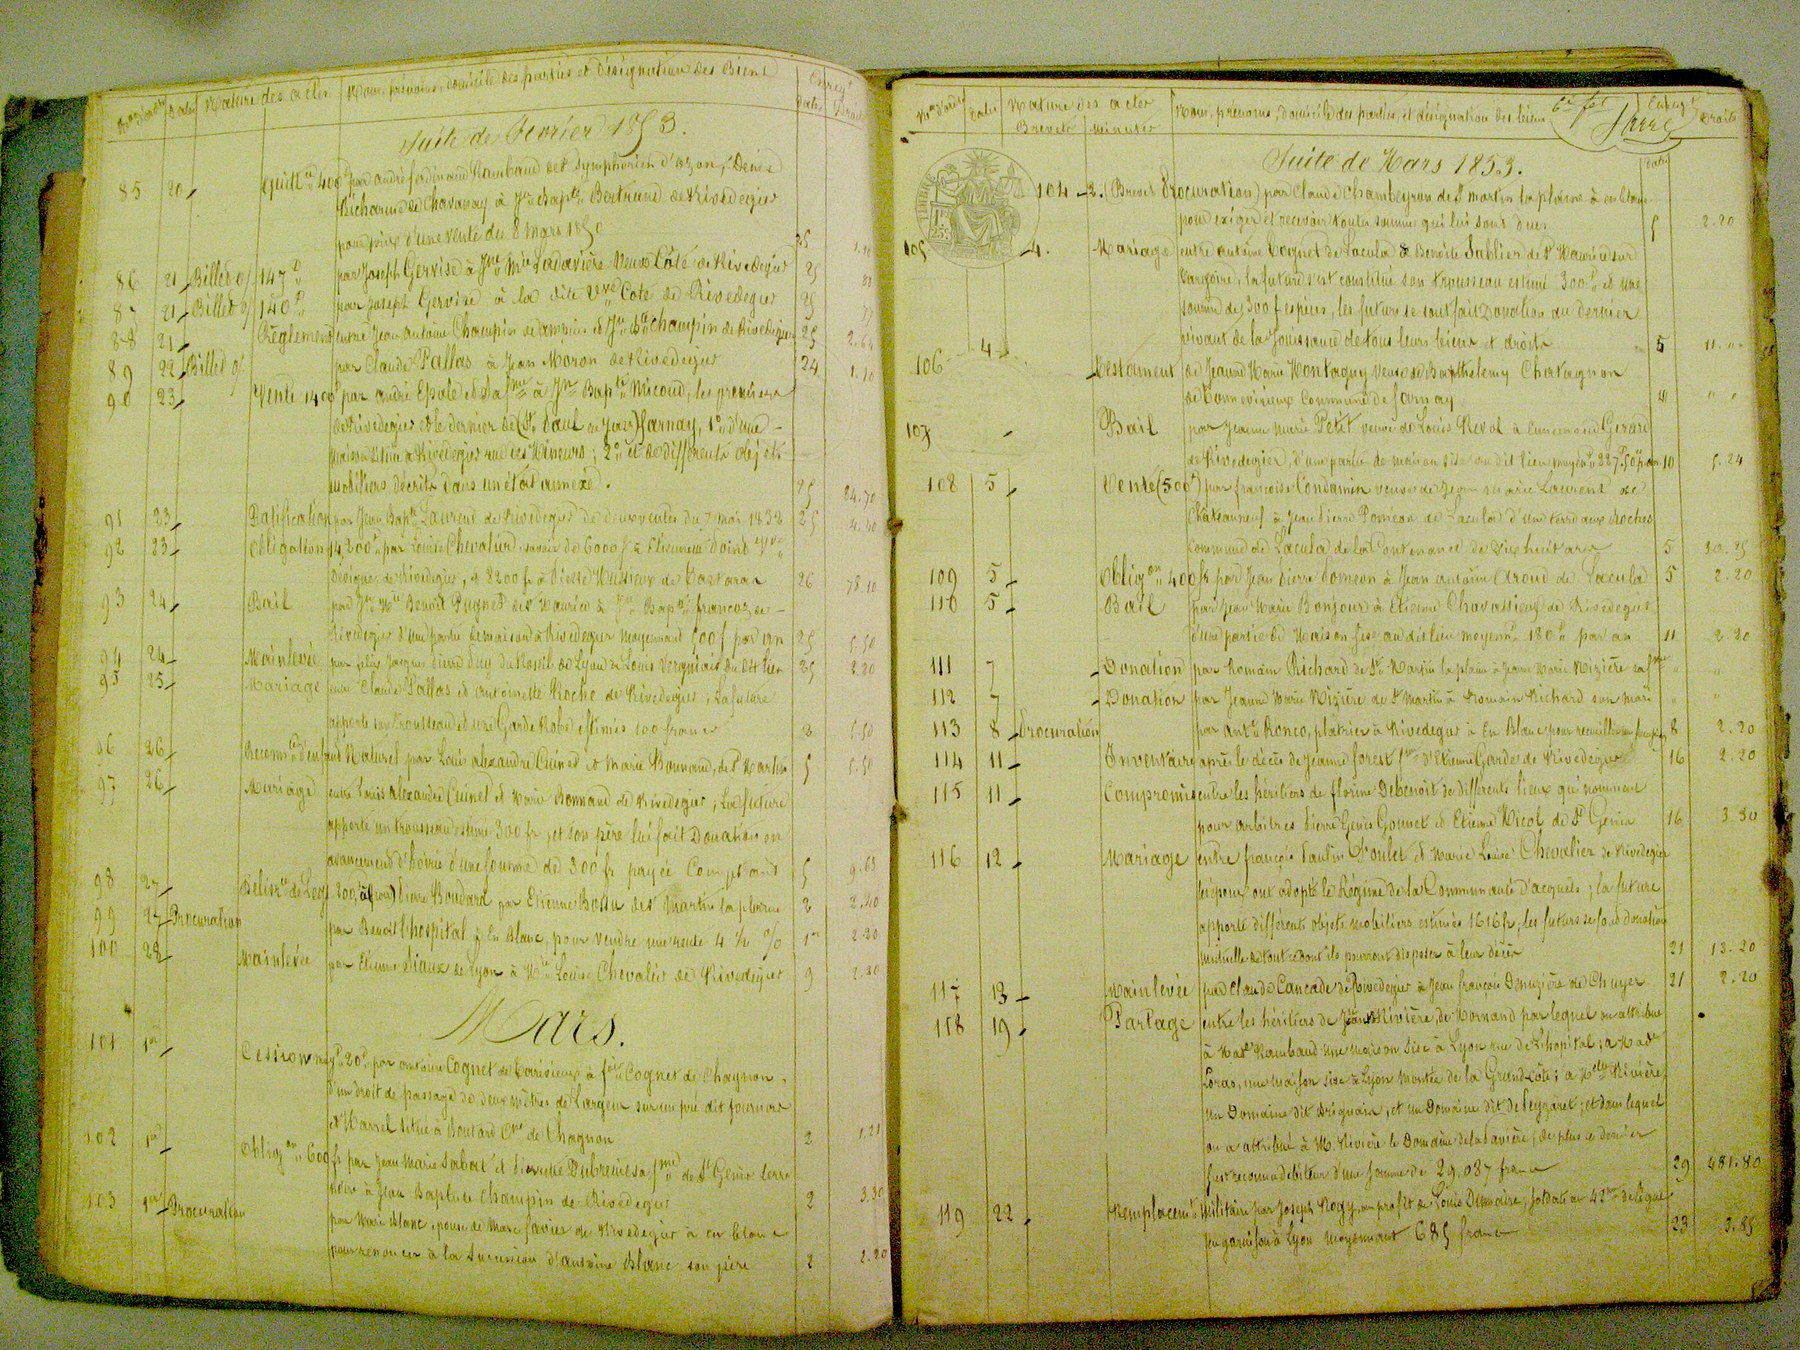 Nos d'ordre Dates Nature des actes Noms, prénoms, domicile des parties et Désignation des Biens Enregt
Dates Droits
Suite de Fevrier 1853.
85 20 Quittce 400f par andré ferdinand Rambaud de St Symphorien d'ozon, Denise
Richarme de Chavanay à Jn Bapte Bertrand de Rivedegier
pour prix d'une vente du 8 mars 1850 25
86 21 Billet o/ 147f par Joseph Gervise à Jne Mie Veuve Coté de Rivedegier 25
87 21 Billet o/ 140f par Joseph Gervise à la dite Vve Coté de Rivedegier 25
88 21 Règlement entre Jean Antoine Champin et Jn Bte Champin de Rivedegier 25 2.64
89 22 Billet o/ par Claude Pallas à Jean Moron de Rivedegier 24 1.10
90 23 Vente 1400f par andré Epale et sa fme à Jn Bapte Micoud, les premiers
de Rivedegier et le dernier de (St Paul en Jarez) Farnay, 1o d'une
maison située à Rivedegier rue des Mineurs; 2o et de différents objets
mobiliers décrits dans un état annexé. 25 84.70
91 23 Ratification par Jean Bapte Laurent de Rivedegier de deux ventes du 7 mai 1832 25
92 23 Obligation 14,200f par Louise Chevalier, savoir de 6000f à Etiennette Doind
de Rivedegier, et 8200 fr à Pierre Mussieux de Tartaras 26 78.10
93 24 Bail par Jn Mie Benoit Pugnet de St Maurice à Jn Bapte francoz de
Rivedegier d'une partie de maison à Rivedegier moyennant 500f par an 25 5.50
94 24 Mainlevée par felix Jacques Pierre Puy du Roseil de Lyon à Louis Vergniais du dit lieu 25 2.20
95 25 Mariage entre Claude Pallas et antoinette Roche de Rivedegier; la future
apporte un trousseau et une Garde Robe estimés 100 francs 2 5.50
96 26 Reconnce d'enfant Naturel par Louis alexandre Cuinet et Marie Bonnand, de St Martin 5 5.50
97 26 Mariage entre Louis Alexandre Cuinet et Marie Bonnand de Rivedegier; La future
apporte un trousseau estimé 300 fr, et son père lui fait Donation en
avancement d'hoirie d'une somme de 300 fr payée Comptant 5 9.63
98 27 Delivrce de Legs 300f à Pierre Boudard par Etienne de St Martin la plaine 2 2.20
99 27 Procuration par Benoit l'hospital à En Blanc, pour vendre une rente 4 ½ % 1er 2.20
100 28 Mainlevée par Etienne Siaux de Lyon à Mie Louise Chevalier de Rivedegier 9 2.20
Mars.
101 1er Cession moyt 20f, par antoine Cognet de Corisieux à fois Cognet de Chagnon,
d'un droit de passage de deux mètres de Largeur sur un pré dit fournore
situé à Boutard Cne de Chagnon 2 1.21
102 1er Obligon 600 fr par Jean Marie Sabot et Pierrette Dubreuil sa fme de St Genis terre
noire à Jean Baptiste Champin de Rivedegier 2 3.30
103 1er Procuration par Marie Blanc, épouse de Marc favier de Rivedegier à en blanc
pour renoncer à la Succession d'antoine Blanc son père 2 2.20
Nos d'ordre Dates Nature des actes Noms, prénoms, domicile des parties, et désignation des biens Enregt
Brevets Minutes Dates Droits
TIMBRE
Suite de Mars 1853.
104 2 (Brevet Procuration) par Claude Chambeyron de St martin la plaine à en blanc
pour exiger et recevoir toutes sommes qui lui sont dues 5 2.20
105 4 Mariage entre antoine Cognet de Lacula & Benoite Sablier de St Maurice sur
Dargoire, la future s'est constitué son trousseau estimé 300f et une
somme de 300f espèces, les futurs se sont fait Donation au dernier
vivant de la jouissance de tous leurs biens et droits 5 11. " "
106 4 Testament de Jeanne Marie Montagny Veuve de Barthelemy Chataignon
Commune de farnay " " "
107 Bail par Jeanne Marie Petit veuve de Louis Revol à Ennemond Girard
de Rivedegier, d'une partie de maison sise au dit lieu moyent 227f50 par an 10 5.24
108 5 Vente (500f) par françoise Condamin veuve de Jean Marie Laurent de
Chateauneuf à Jean Pierre Poméon de Lacula d'une terre aux Roches
commune de Lacula de la Contenance de dix huit ares 5 30.25
109 5 Obligon 400 fr par Jean Pierre Poméon à Jean antoine Aroud de Lacula 5 2.20
110 5 Bail par Jean Marie Bonjour à Etienne Chavassieux de Rivedegier
d'une partie de Maison sise au dit lieu moyent 180f par an 11 2.20
111 7 Donation par Romain Richard de St Martin la plaine à Jeanne Marie Mizière sa fme " "
112 7 Donation par Jeanne Marie Mizière de St Martin à Romain Richard son mari " "
113 8 Procuration par Antne Ronco, plâtrier à Rivedegier à En Blanc pour recueillir 8 2.20
114 11 Inventaire après le décès de Jeanne forest fme d'Etienne Garde de Rivedegier 16 2.20
115 11 Compromis entre les héritiers de florine Debenoît de différents lieux qui nomment
pour arbitres Pierre Genis Gonnet et Etienne Nicol de St Genis 16 3.30
116 12 Mariage entre françois Paulin Poulet et Marie Louise Chevalier de Rivedegier
les époux ont adopté le Régime de la Communauté d'acquets; la future
apporte différents objets mobiliers estimés 1616 fr, les futurs se font donation
mutuelle de tout ce dont ils pourront disposer à leur décès 21 13.20
117 13 Mainlevée par Claude Cancade de Rivedegier à Jean françois Denuzière de Chuyer 21 2.20
118 19 Partage entre les héritiers de Rivière, de Mornand par lequel on attribue
à Made Rambaud une maison Sise à Lyon rue de l'hopital; à Made
Loras, une maison Sise à Lyon Montée de la Grande Côte; à Melle Rivière,
un Domaine dit Brignais, et un Domaine dit de Peyzaret; et dans lequel
on a attribué à M. Rivière le Domaine de la favière; de plus ce dernier
s'est reconnu débiteur d'une somme de 29,087 francs 29 481.80
119 22 Remplacement Militaire par Joseph Rogy, au profit de Louis Dumaire, soldat au 42me de ligne
en garnison à Lyon moyennant 685 francs 23 3.85